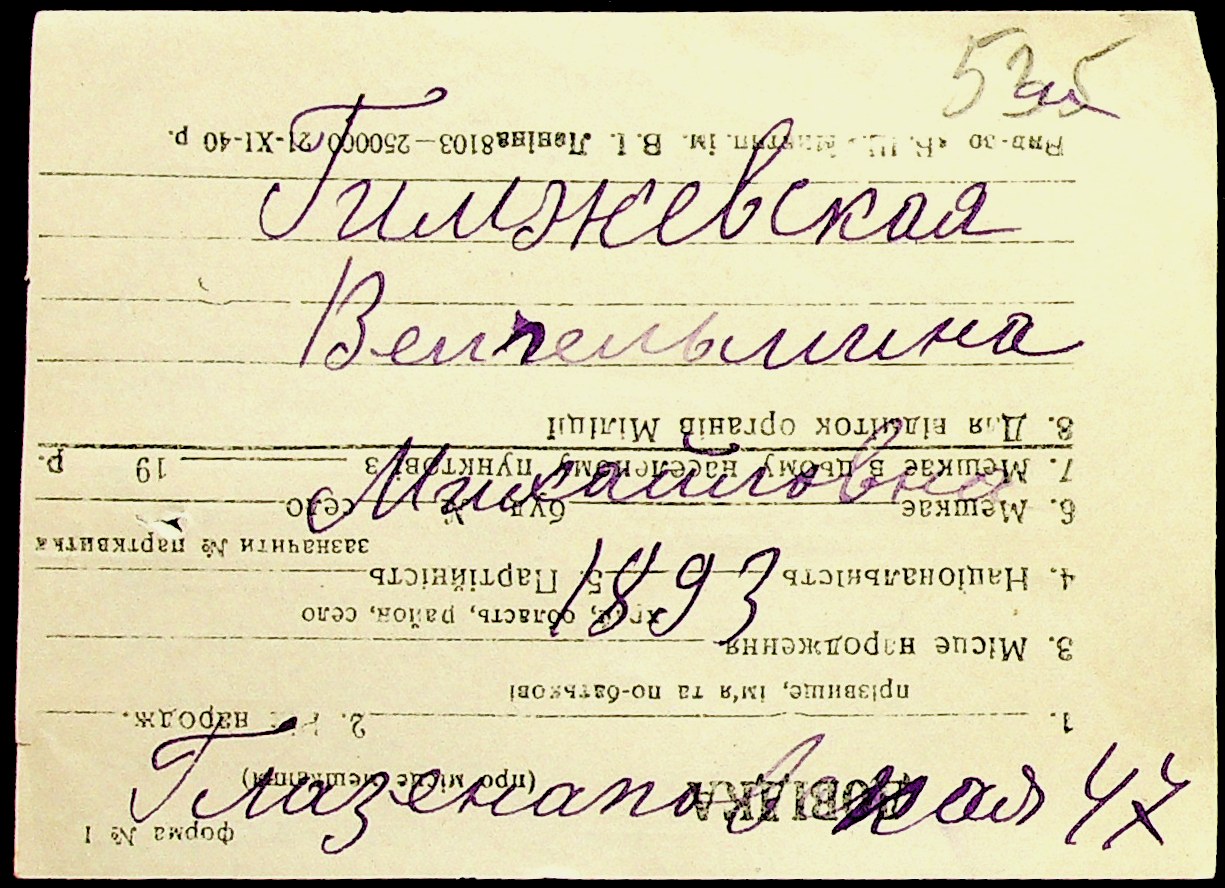 535
Гимжевская
Михайловна
1893
Глазенаповская 47
форма № 1
ДОВІДКА
(про місце мешкання)
1. 2. народж.
прізвище, ім'я та по-батькові
3. Місце народження
край, область, район, село
4. Національність 5. Партійність
зазначити № партквитка
6. Мешкає буд. № село
7. Мешкає в цьому населеному пунктові з 19 р.
8. Для відміток органів Міліції
Вид-во ім. В. І. Леніна 8103—250000 21-XI-40 р.